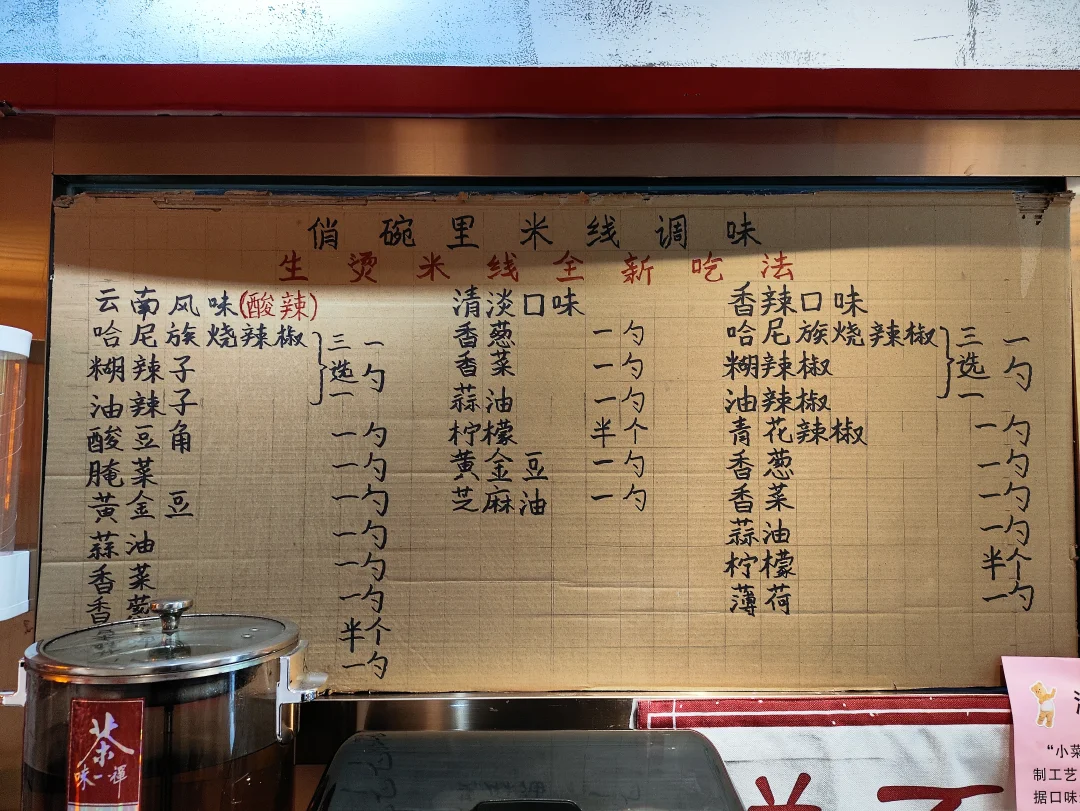 俏碗里米线调味
生烫米线全新吃法
云南风味(酸辣)
哈尼族烧辣椒
糊辣子
油辣子
三选一 一勺
酸豆角 一勺
腌菜 一勺
黄金豆 一勺
蒜油 一勺
香菜 一勺
香葱 一勺
半个
一勺
清淡口味
香葱 一勺
香菜 一勺
蒜油 一勺
柠檬 半个
黄金豆 一勺
芝麻油 一勺
香辣口味
哈尼族烧辣椒
糊辣椒
油辣椒
三选一 一勺
青花辣椒 一勺
香葱 一勺
香菜 一勺
蒜油 一勺
柠檬 半个
薄荷 一勺
茶
味一禪
“小菜
制工艺
据口味